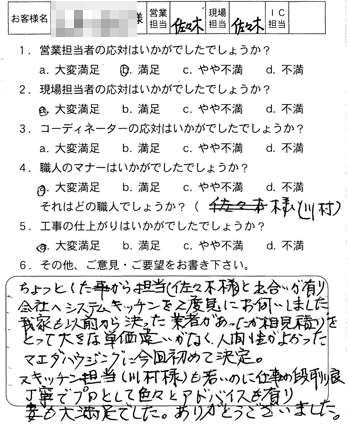 お客様名 様 営業担当 佐々木 現場担当 佐々木 IC担当
1．営業担当者の応対はいかがでしたでしょうか？
a. 大変満足 b. 満足 c. やや不満 d. 不満
2．現場担当者の応対はいかがでしたでしょうか？
a. 大変満足 b. 満足 c. やや不満 d. 不満
3．コーディネーターの応対はいかがでしたでしょうか？
a. 大変満足 b. 満足 c. やや不満 d. 不満
4．職人のマナーはいかがでしたでしょうか？
a. 大変満足 b. 満足 c. やや不満 d. 不満
それはどの職人でしょうか？（ 佐々木様（川村）
5．工事の仕上がりはいかがでしたでしょうか？
a. 大変満足 b. 満足 c. やや不満 d. 不満
6．その他、ご意見・ご要望をお書き下さい。
ちょっとした事から担当（佐々木様）と出合いが有り
会社へシステムキッチンを2度見にお伺いしました
我家も以前から決った業者があったが相見積りを
とって大きな単価違いがなく、人間性がよかった
マエダハウジングに今回初めて決定。
スキッチン担当（川村様）も若いのに仕事の段取り良
丁寧でプロとして色々とアドバイスも有り
妻も大満足でした。ありがとうございました。